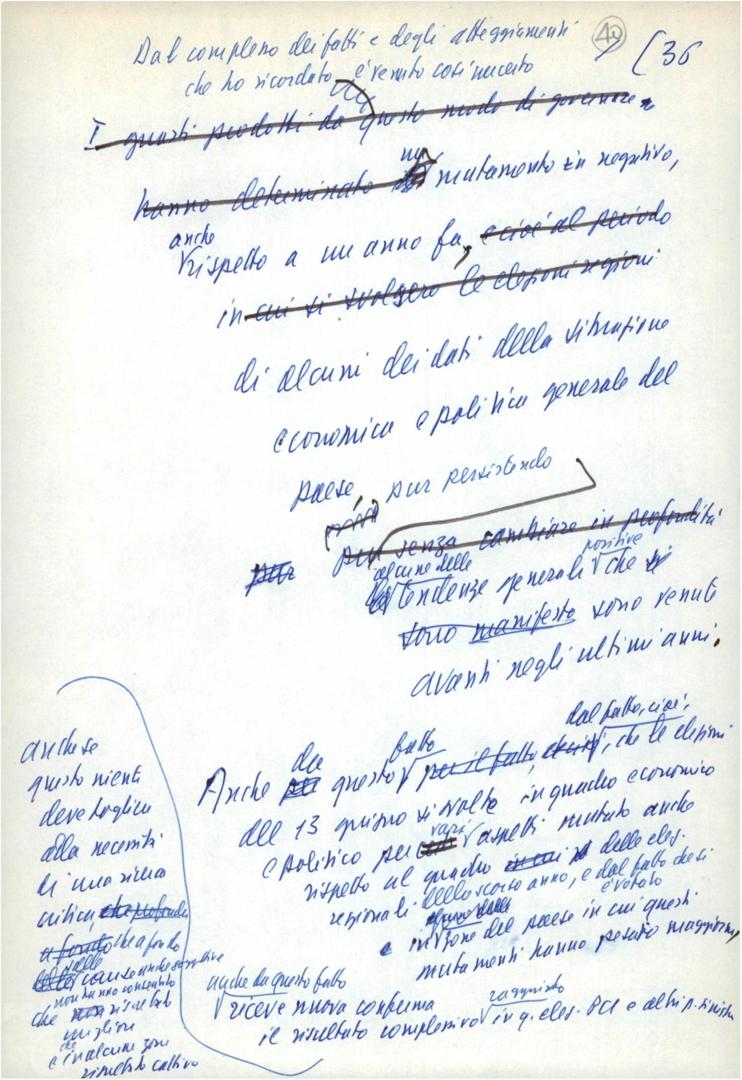 40
[36
Dal complesso dei fatti e degli atteggiamenti
che ho ricordato è venuto così nascendo
I guasti prodotti da questo modo di governare
hanno determinato un mutamento in negativo,
anche
rispetto a un anno fa, e cioè al periodo
in cui si svolsero le elezioni regioni
di alcuni dei dati della situazione
economica e politica generale del
paese, pur persistendo
pur senza cambiare in profondità
alcune delle positive
tendenze generali che si
sono manifesto sono venuti
avanti negli ultimi anni.
da fatto dal fatto, cioè,
Anche questo per il fatto, che le elezioni
del 13 giugno si svolte in quadro economico
e politico per vari aspetti mutato anche
rispetto al quadro in cui delle eles.
regionali dello scorso anno, e dal fatto che si
è votato
e in zone del paese in cui questi
mutamenti hanno pesato maggiorm.
anche da questo fatto
riceve nuova conferma
raggiunto
il risultato complessivo in q. eles. PCI e altri p. sinistra
anche se
questo niente
deve togliere
alla necessità
di una seria
critica, che profonda
a fondo che a fondo
delle cause anche soggettive
non hanno consentito
che risultato
migliore
che
e in alcune zone
risultato cattivo